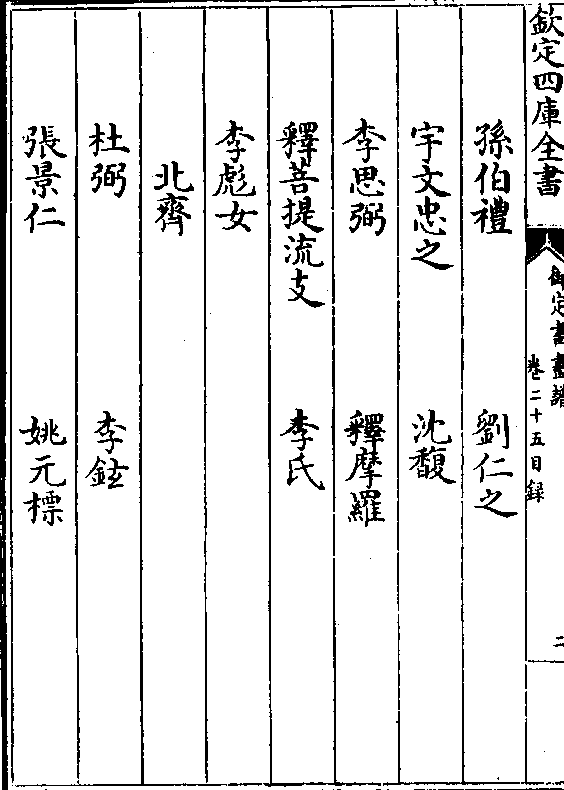 欽定四庫全書
御定書畫譜
卷二十五目録
二
孫伯禮 劉仁之
宇文忠之 沈馥
李思弼 釋摩羅
釋菩提流支 李氏
李彪女
北齊
杜弼 李鉉
張景仁 姚元標